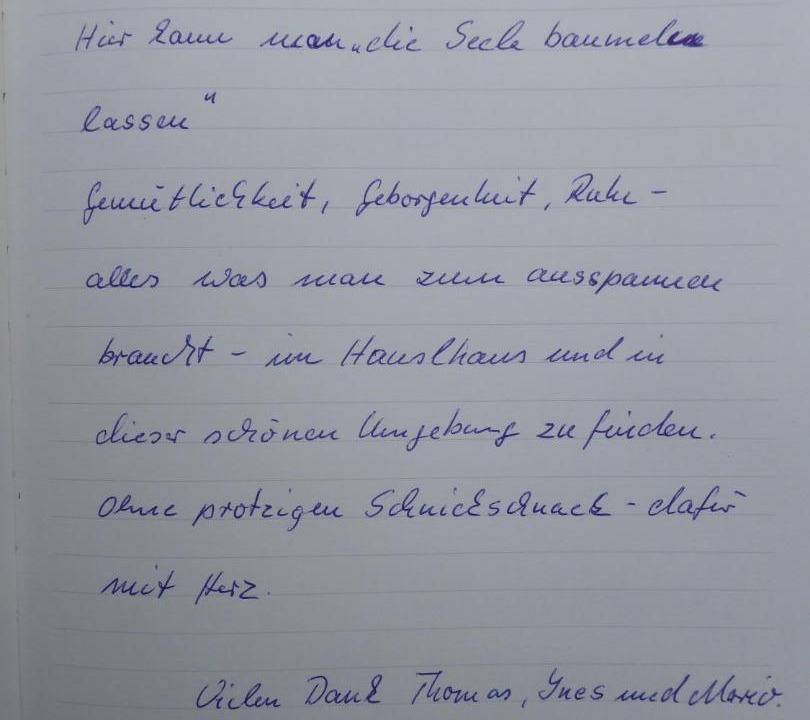 Hier kann man „die Seele baumeln
lassen“
Gemütlichkeit, Geborgenheit, Ruhe -
alles was man zum ausspannen
braucht - im Hauslhaus und in
dieser schönen Umgebung zu finden.
Ohne protzigen Schnickschnack - dafür
mit Herz.
Vielen Dank Thomas, Ines und Mario.